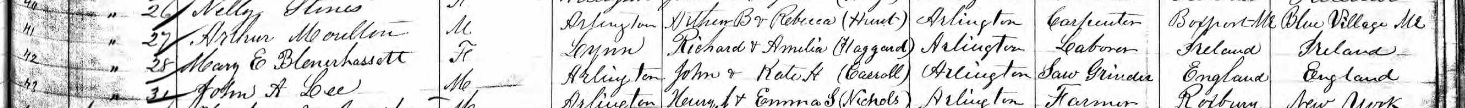 " 26 Nelly Stines
41 " 27 Arthur Moulton M Arlington Arthur B & Rebecca (Hunt) Arlington Carpenter Me Blue Village Me
42 " 28 Mary E Blenerhassett F Lynn Richard & Amelia (Haggard) Arlington Laborer Ireland Ireland
" 31 John A Lee M Arlington John & Kate A (Carroll) Arlington Saw Grinder England England
Arlington Henry J & Emma S (Nichols) Arlington Farmer Roxbury New York